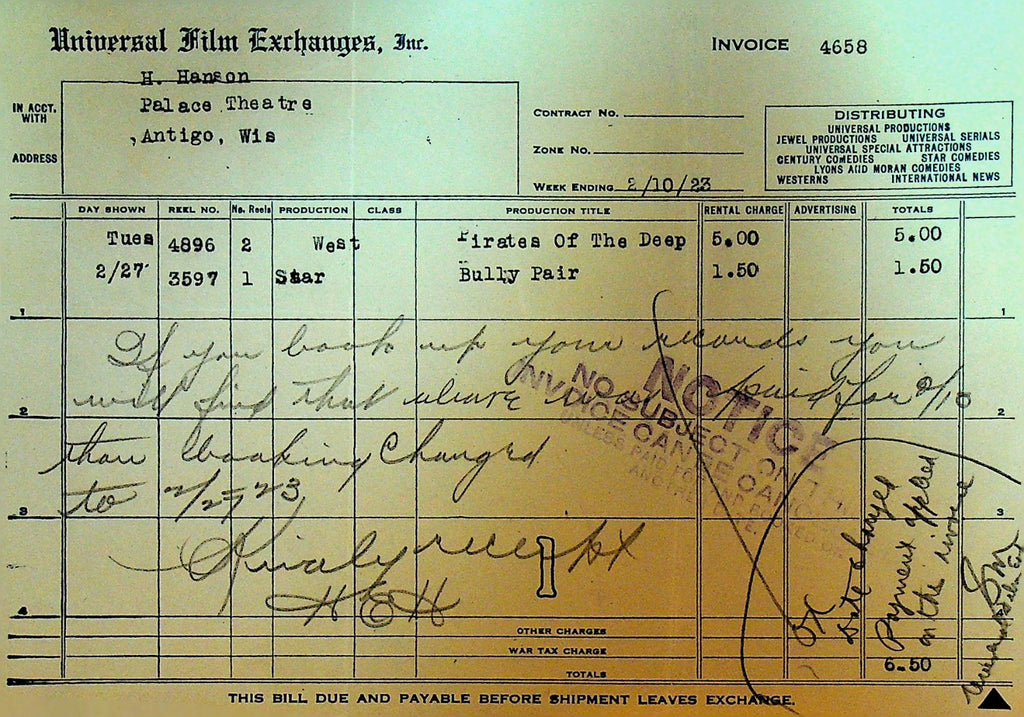 Universal Film Exchanges, Inc.
INVOICE 4658
IN ACCT. WITH
H. Hanson
Palace Theatre
ADDRESS
,Antigo, Wis
CONTRACT NO.
ZONE NO.
WEEK ENDING 2/10/23
DISTRIBUTING
UNIVERSAL PRODUCTIONS
JEWEL PRODUCTIONS UNIVERSAL SERIALS
UNIVERSAL SPECIAL ATTRACTIONS
CENTURY COMEDIES STAR COMEDIES
LYONS AND MORAN COMEDIES
WESTERNS INTERNATIONAL NEWS
DAY SHOWN REEL NO. No. Reels PRODUCTION CLASS PRODUCTION TITLE RENTAL CHARGE ADVERTISING TOTALS
Tues 4896 2 West Pirates Of The Deep 5.00 5.00
2/27 3597 1 Star Bully Pair 1.50 1.50
1 1
If you look up your records you
will find that above was paid for 2/10
2 2
than booking changed
to 2/27 23
3 3
Kindly receipt
H E H
4
NOTICE
NO SUBJECT ON THIS
INVOICE CAN BE CANCELLED
UNLESS PAID FOR
OK
Date changed
Payment applied
on the invoice
Universal Film Ex
OTHER CHARGES
WAR TAX CHARGE
TOTALS 6.50
THIS BILL DUE AND PAYABLE BEFORE SHIPMENT LEAVES EXCHANGE.